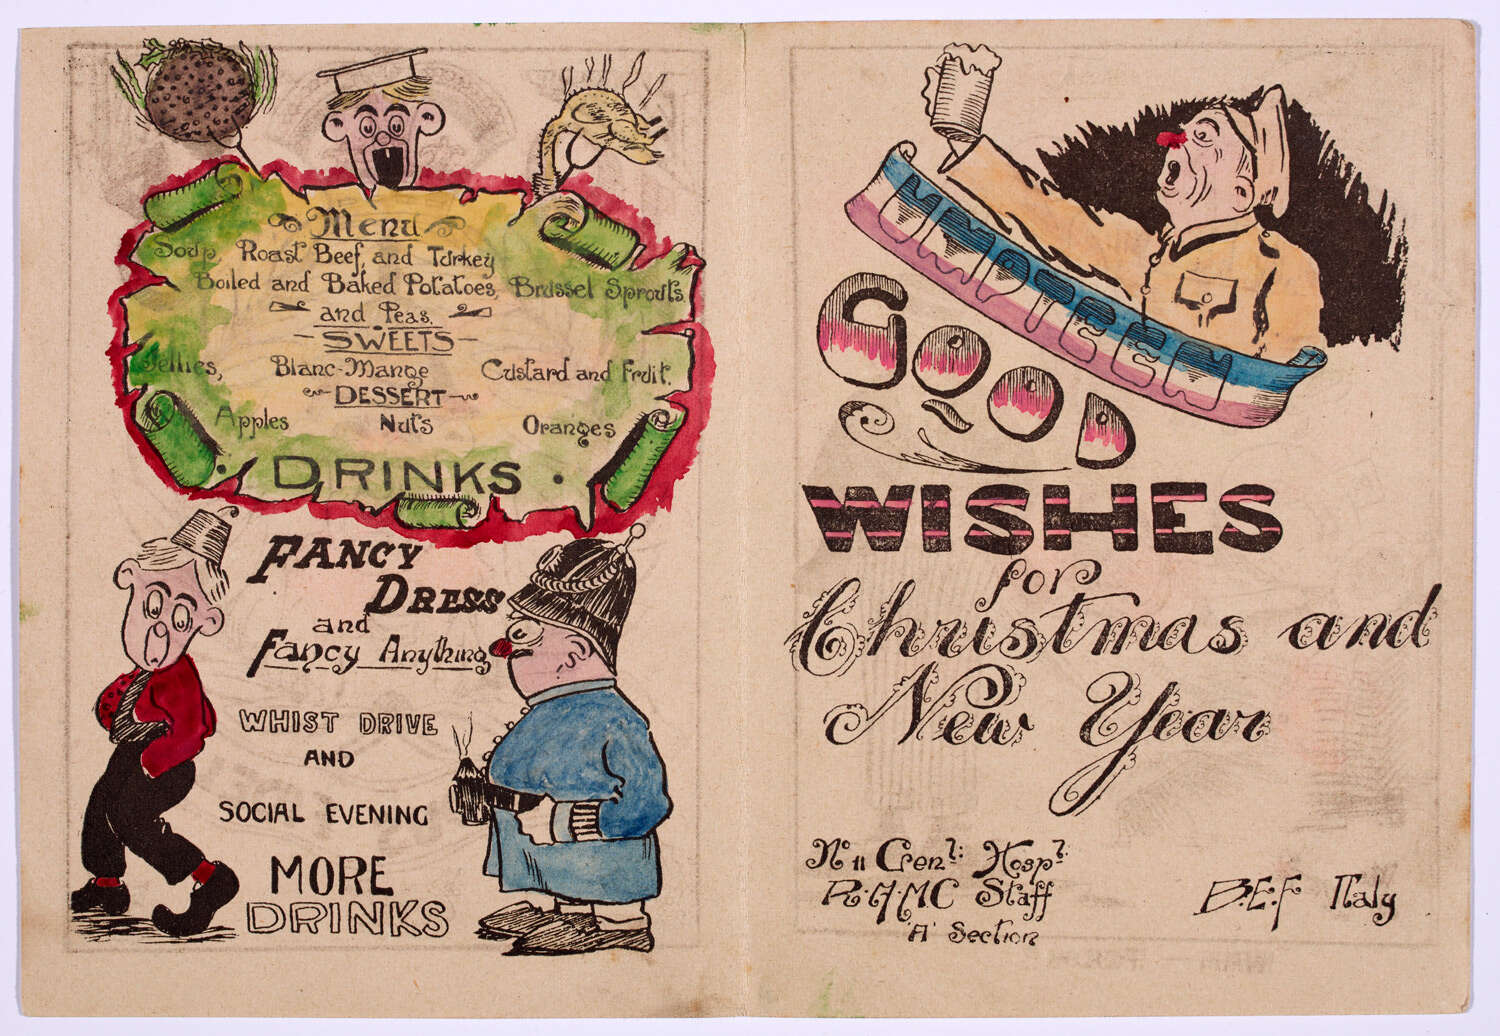 Menu
Soup, Roast Beef, and Turkey
Boiled and Baked Potatoes, Brussel Sprouts
and Peas.
-SWEETS-
Jellies, Blanc-Mange Custard and Fruit.
DESSERT
Apples Nuts Oranges
· DRINKS ·
FANCY
DRESS
and
Fancy Anything
WHIST DRIVE
AND
SOCIAL EVENING
MORE
DRINKS
UMPTEEN
GOOD
WISHES
for
Christmas and
New Year
No 11 Genl: Hospl.
R.A.M.C Staff
'A' Section
B.E.F Italy